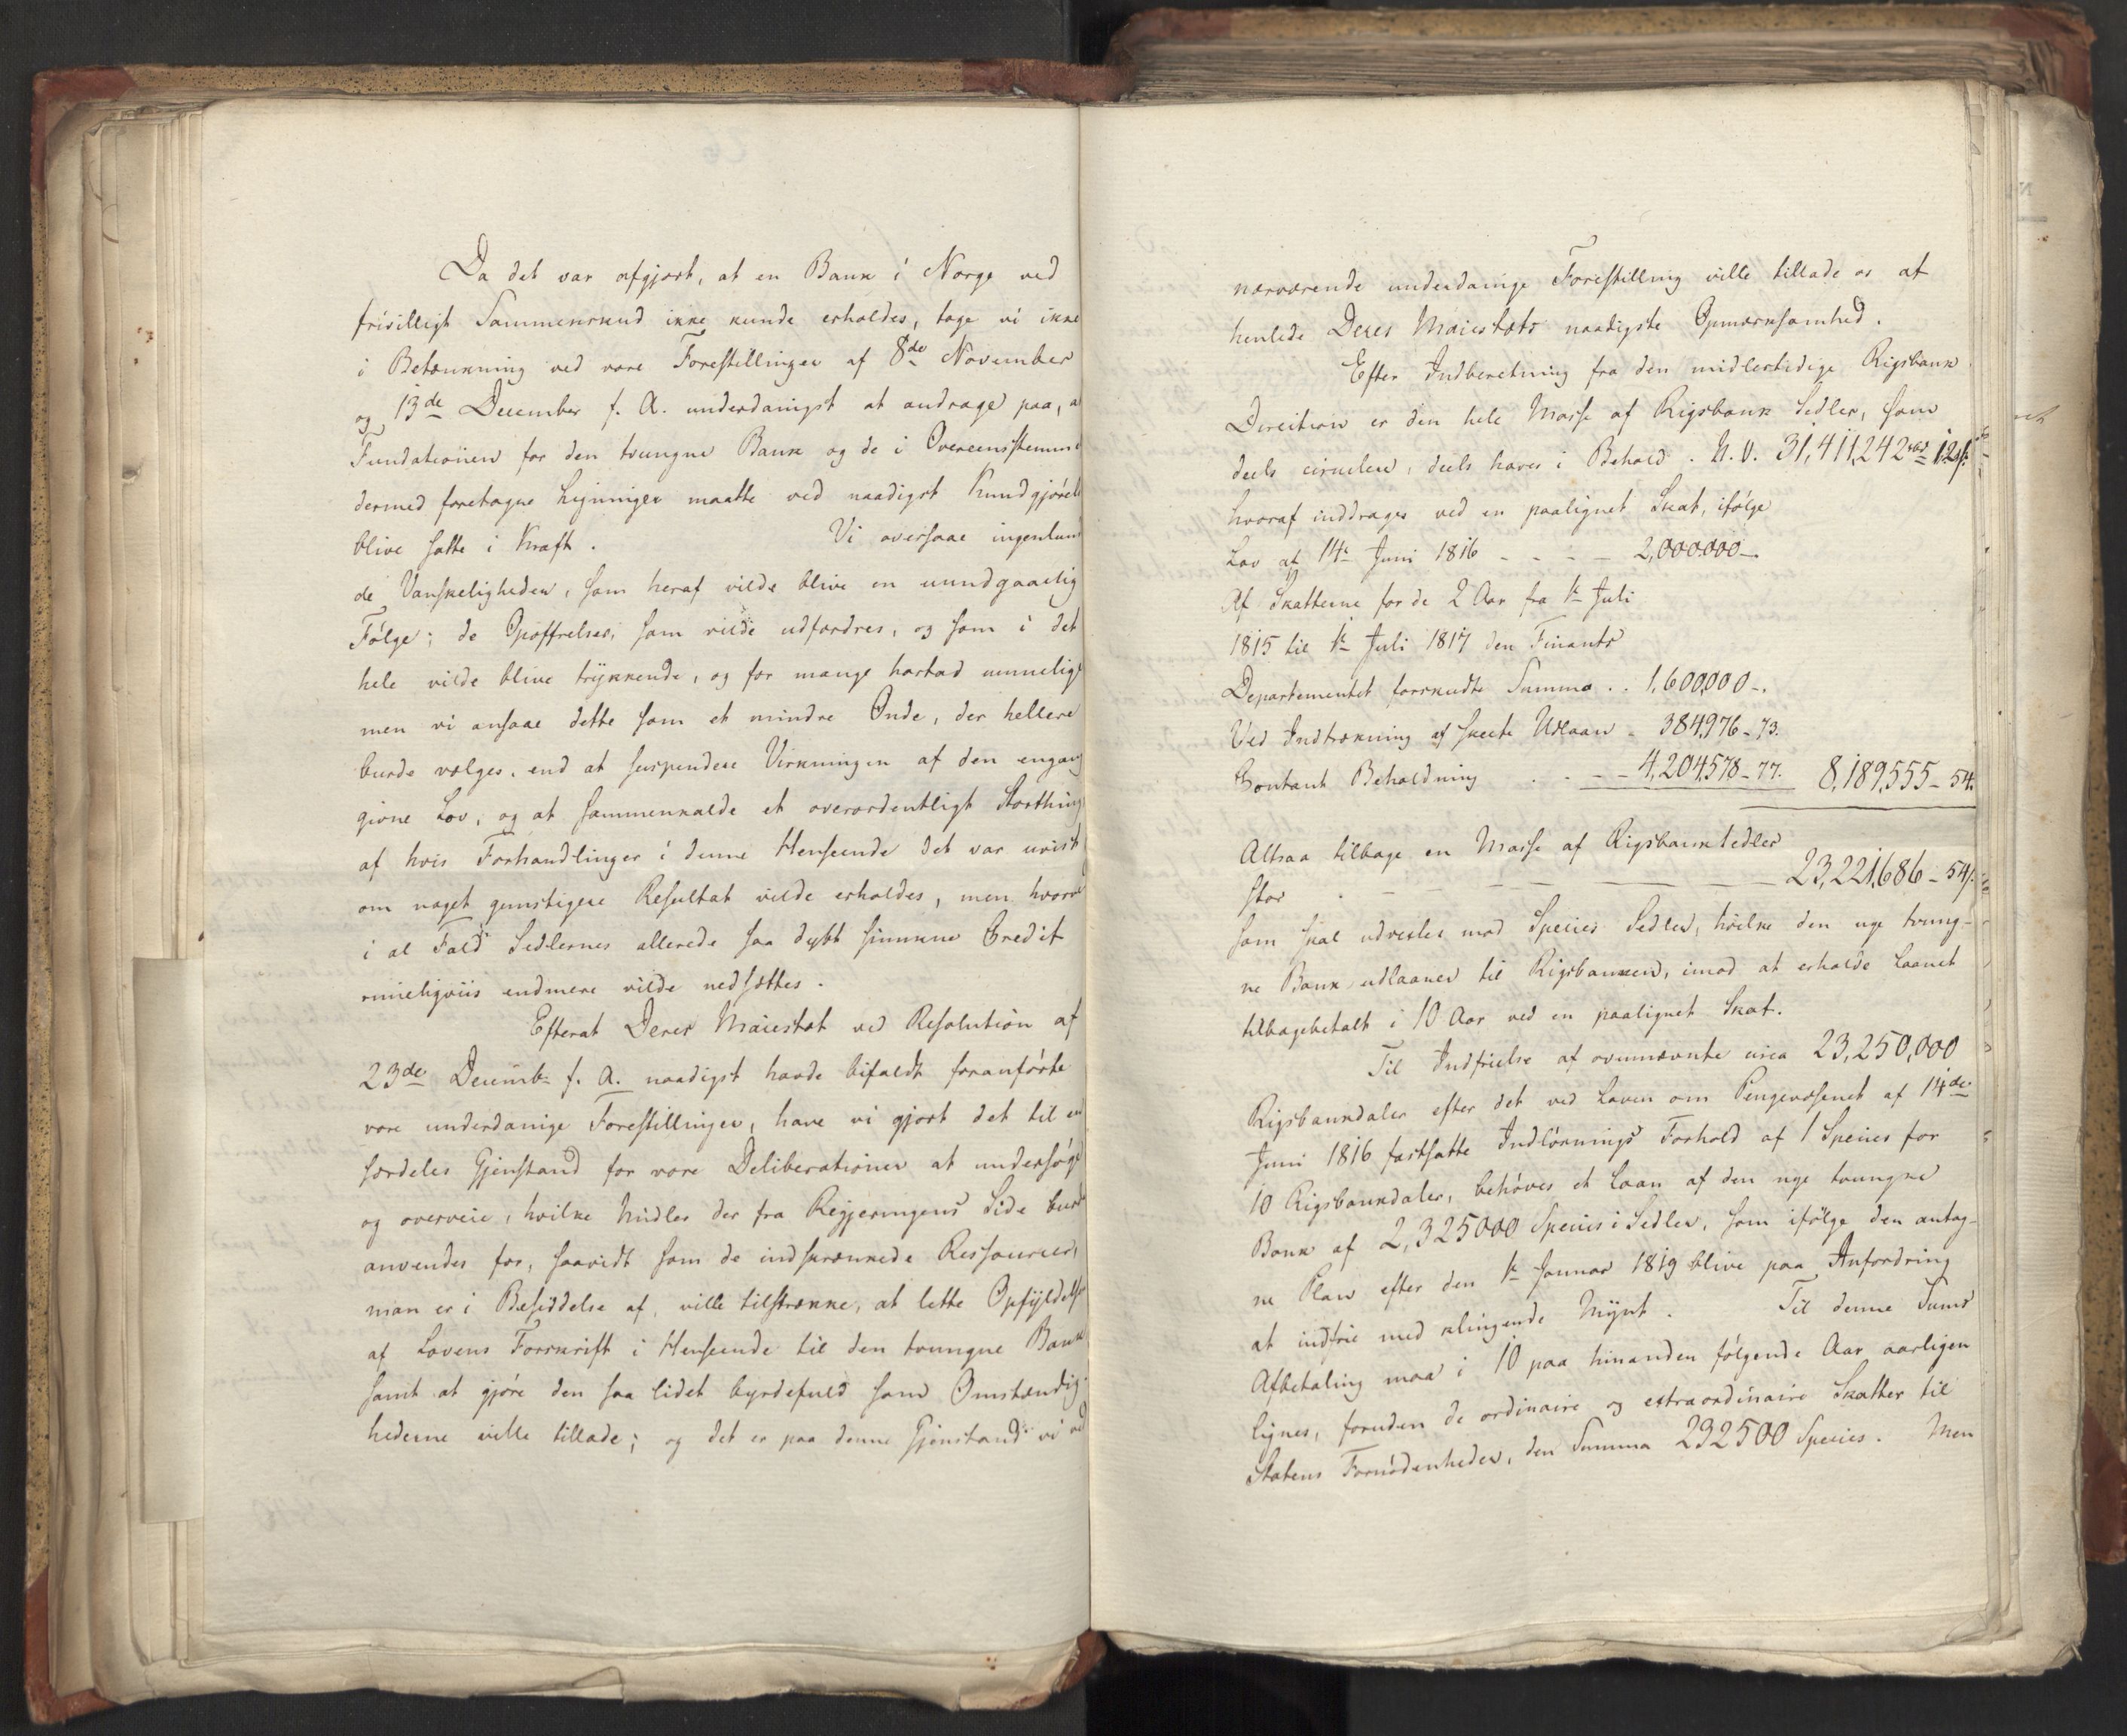 Da det var afgjort, at en Bank i Norge ved
frivilligt Sammenskud ikke kunde erholdes, toge vi ikke
i Betænkning ved vore Forestillinger af 8de November
og 13de December f. A. underdanigst at andrage paa, a
Fundationen for den tvungne Bank og de i Overeensstemme
dermed foretagne Ligninger maatte ved naadigst Kundgjørels
blive satte i Kraft. Vi oversaae ingenlun
de Vanskeligheder, som heraf vilde blive en uundgaaelig
Følge; de Opoffrelser, som vilde udfordres, og som i det
hele vilde blive trykkende, og for mange haabd umuelige
men vi ansaae dette som et mindre Onde, der hellere
burde vælges, end at suspendere Virkningen af den engang
givne Lov, og at sammenkalde et overordentligt Storthing
af hvis Forhandlinger i denne Henseende det var uvist
om noget gunstigere Resultat vilde erholdes, men hvorved
i al Fald Sedlernes allerede saa dybt sunkne Credit
rimeligviis endmere vilde nedsættes.
Efterat Deres Majestæt ved Resolution af
23de Decembr f. A. naadigst havde bifaldt foranførte
vore underdanige Forestillinger, have vi gjort det til en
særdeles Gjenstand for vore Deliberationer at undersøge
og overveie, hvilke Midler der fra Regjeringens Side burde
anvendes for, saavidt som de indskrænkede Ressourcer,
man er i Besiddelse af, ville tilstrække, at lette Opfyldelse
af Lovens Forskrift i Henseende til den tvungne Bank
samt at gjøre den saa lidet byrdefuld som Omstændig-
hederne ville tillade; og det er paa denne Gjenstand vi ved
nærværende underdanige Forestilling ville tillade os at
henlede Deres Majestæts naadigste Opmærksomhed.
Efter Indberetning fra den midlertidige Rigsbank
Direction er den hele Masse af Rigsbank Sedler, som
deels circulere, deels haves i Behold. N. V. 31,411,242 rbd 12 s.
hvoraf inddrages ved en paalignet Skat, ifølge
Lov af 14de Juni 1816 - - - - 2,000,000 -.
Af Skatterne for de 2 Aar fra 1ste Juli
1815 til 1ste Juli 1817 den Finants
Departementet forskudte Summa . . 1,600,000 -.
Ved Indtrækning af skeete Udlaan - 384,976 - 73.
Contant Beholdning . . - - 4,204,578 - 77. 8,189,555 - 54.
Altsaa tilbage en Masse af Rigsbanksedler
stor - - - - 23,221,686 - 54 s.
som skal udvexles mod Species Sedler, hvilke den nye tvung-
ne Bank udlaaner til Rigsbanken, imod at erholde Laanet
tilbagebetalt i 10 Aar ved en paalignet Skat.
Til Indfrielse af ovennævnte circa 23,250,000
Rigsbankdaler efter det ved Loven om Pengevæsenet af 14de
Juni 1816 fastsatte Indløsnings Forhold af 1 Species for
10 Rigsbankdaler, behøves et Laan af den nye tvungne
Bank af 2,325000 Species i Sedler, som ifølge den antag-
ne Plan efter den 1ste Januar 1819 blive paa Anfordring
at indfrie med klingende Mynt. Til denne Sums
Afbetaling maa i 10 paa hinanden følgende Aar aarligen
lignes, foruden de ordinaire og extraordinaire Skatter til
Statens Fornødenheder, den Summa 232500 Species. Men